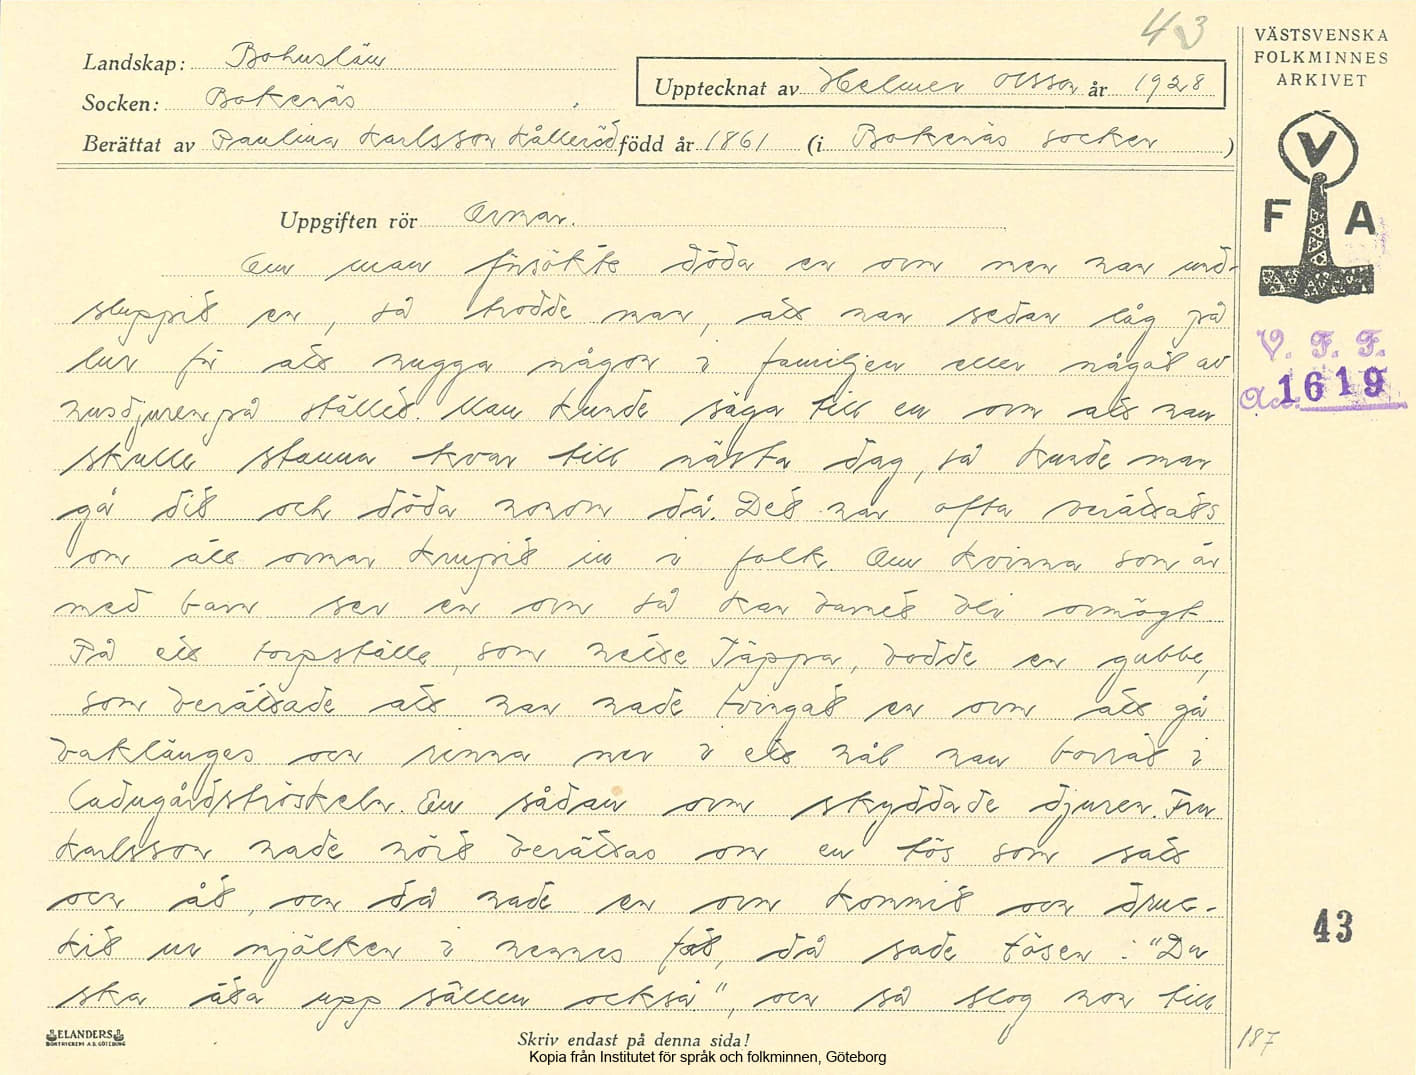 43
VÄSTSVENSKA
FOLKMINNES
ARKIVET
Landskap: Bohuslän
Upptecknat av Helmer Olsson år 1928
Socken: Bokenäs
Berättat av Paulina Karlsson Kålleröd född år 1861 (i Bokenäs socken )
V
F A
Uppgiften rör Ormar.
Om man försökte döda en orm men han und-
sluppit en, så trodde man, att han sedan låg på
lur för att hugga någon i familjen eller något av
husdjuren på stället. Man kunde säga till en orm att han
skulle stanna kvar till nästa dag, så kunde man
gå dit och döda honom då. Det har ofta berättats
om att ormar krupit in i folk. Om kvinna som är
med barn ser en orm så kan barnet bli ormögt.
På ett torpställe, som hette Täppa, bodde en gubbe,
som berättade att han hade tvingat en orm att gå
baklänges och rinna ner i ett hål han borrat i
ladugårdströskeln. En sådan orm skyddade djuren. Fru
Karlsson hade hört berättas om en tös som satt
och åt, och då hade en orm kommit och druc-
kit ur mjölken i hennes fat, då sade tösen: "Du
ska äta upp sällen också", och så slog hon till
V. F. F.
Acc. 1619
43
ELANDERS
BOKTRYCKERI A.B. GÖTEBORG
Skriv endast på denna sida!
Kopia från Institutet för språk och folkminnen, Göteborg
187